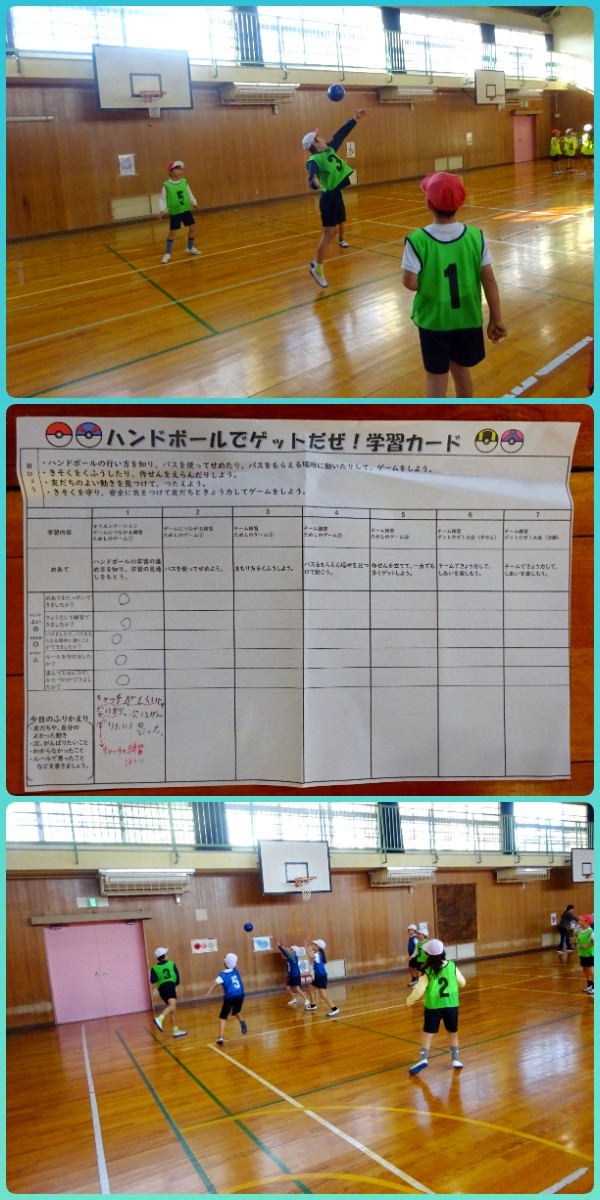 5
3
1
ハンドボールでゲットだぜ！学習カード
・ハンドボールの行い方を知り、パスを使ってせめたり、パスをもらえる場所に動いたりして、ゲームをしよう。
・きそくをくふうしたり、作せんをえらんだりしよう。
・友だちのよい動きを見つけて、つたえよう。
・きそくを守り、安全に気をつけて友だちときょう力してゲームをしよう。
1 2 3 4 5 6 7
学習内容
オリエンテーション
ゲームにつながる練習
ためしのゲーム①
ゲームにつながる練習
ためしのゲーム②
チーム練習
チーム練習
チーム練習
チーム練習
チーム練習
めあて
ハンドボールの学習の進め方を知り、学習の見通しをもとう。
パスを使ってせめよう。
まもり方をくふうしよう。
パスをもらえる場所を見つけて動こう。
作せんを立てて、一点でも多くゲットしよう。
チームできょう力して、しあいを楽しもう。
チームできょう力して、しあいを楽しもう。
めあてをたっせいできましたか？
きょう力して練習できましたか？
ルールを守れましたか？
今日のふりかえり
・友だちや、自分のよかった動き
・次、がんばりたいこと
・わからなかったこと
・ルールで思ったことなどを書きましょう。
3
5
2